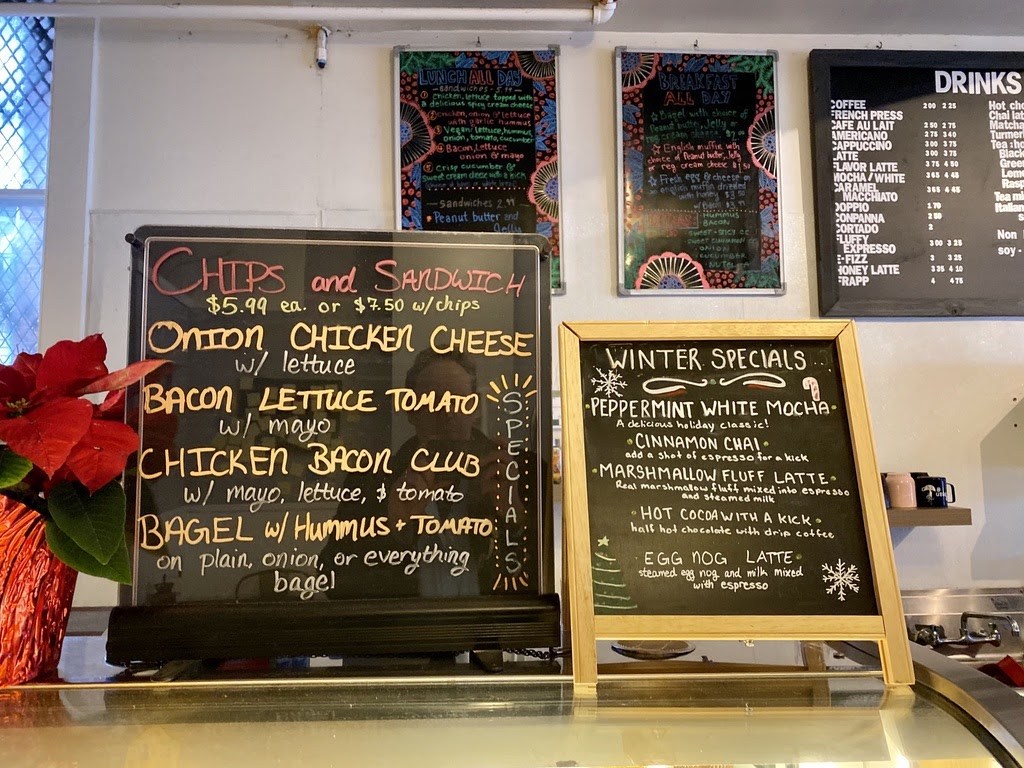 LUNCH ALL DAY
sandwiches - 5.99
① Chicken, lettuce topped with
a delicious spicy cream cheese
② Chicken, onion & lettuce
with garlic hummus
③ Vegan: lettuce, hummus,
onion, tomato, cucumber
④ Bacon, Lettuce
onion & mayo
crisp cucumber &
sweet cream cheese with a kick
sandwiches 2.99
Peanut butter and
Jelly
BREAKFAST
ALL DAY
Bagel with choice of
Peanut butter, Jelly or
cream cheese
English muffin with
choice of Peanut butter, Jelly
or reg cream cheese
Fresh egg & cheese on
english muffin drizzled
with honey
HUMMUS
BACON
SWEET CUCUMBER
ONION
CUCUMBER
DRINKS
COFFEE 2 00 2 25
FRENCH PRESS
CAFE AU LAIT 2 50 2 75
AMERICANO 2 75 3 40
CAPPUCCINO 3 00 3 75
LATTE 3 00 3 75
FLAVOR LATTE 3 75 4 50
MOCHA / WHITE 3 65 4 45
CARAMEL
MACCHIATO 3 65 4 45
DOPPIO 1 70
CONPANNA
CORTADO 2
FLUFFY
EXPRESSO 3 00 3 25
E-FIZZ 3 3 25
HONEY LATTE 3 35 4 10
FRAPP 4 4 75
Hot cho
Chai lat
Matcha
Turmer
Tea : ho
Black
Green
Lemo
Rasp
Tea mi
Italian
Non
soy -
CHIPS and SANDWICH
$5.99 ea. or $7.50 w/chips
ONION CHICKEN CHEESE
w/ lettuce
BACON LETTUCE TOMATO
w/ mayo
CHICKEN BACON CLUB
w/ mayo, lettuce, & tomato
BAGEL w/ HUMMUS + TOMATO
on plain, onion, or everything
bagel
SPECIALS
WINTER SPECIALS
PEPPERMINT WHITE MOCHA
A delicious holiday classic!
CINNAMON CHAI
add a shot of espresso for a kick
MARSHMALLOW FLUFF LATTE
Real marshmallow fluff mixed into espresso
and steamed milk
HOT COCOA WITH A KICK
half hot chocolate with drip coffee
EGG NOG LATTE
steamed egg nog and milk mixed
with espresso